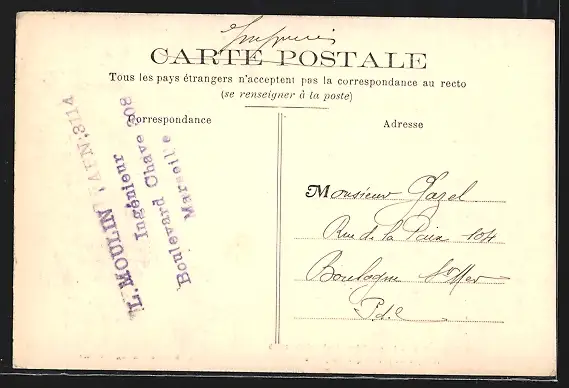 Imprimés
CARTE POSTALE
Tous les pays étrangers n'acceptent pas la correspondance au recto
(se renseigner à la poste)
Correspondance
Adresse
L. MOULIN
Ingénieur
Boulevard Chave 208
Marseille
Monsieur Gazel
Rue de la Paix 104
Boulogne s/Mer
P.d.C